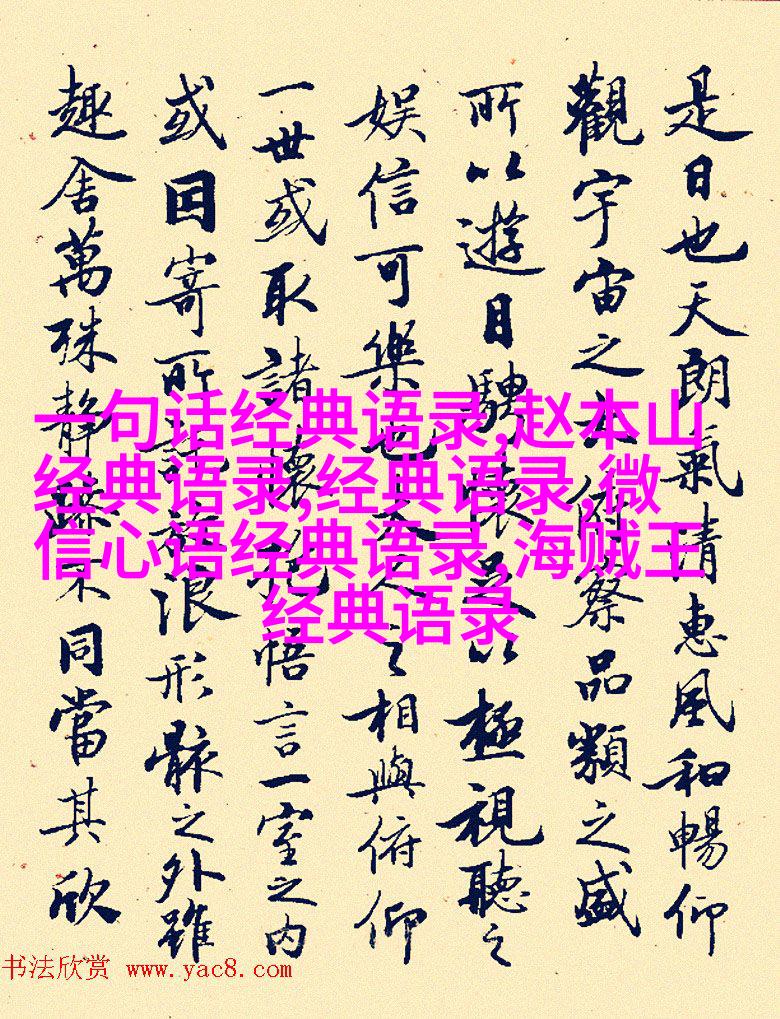 是日也天朗氣清惠風和暢仰
觀宇宙之大俯察品類之盛
所以遊目騁懷足以極視聽之
娛信可樂也夫人之相與俯仰
一世或取諸懷抱悟言一室之内
或因寄所託放浪形骸之外雖
趣舍萬殊靜躁不同當其欣
一句话经典语录,赵本山
经典语录,经典语录,微
信心语经典语录,海贼王
经典语录
书法欣赏 www.yac8.com